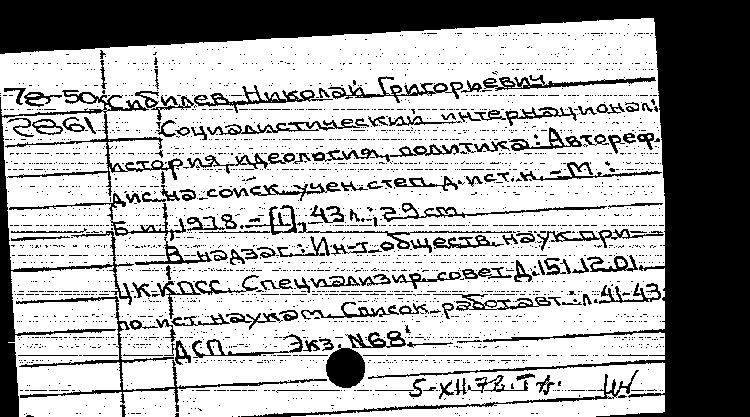 78-50к Сибилев, Николай Григорьевич.
2861 Социалистический интернационал:
история, идеология, политика: Автореф.
дис. на соиск. учен. степ. д. ист. н. - М.:
Б. и., 1978. - [1], 43 л.; 29 см.
В надзаг.: Ин-т обществ. наук при
ЦК КПСС. Специализир. совет Д.151.12.01.
по ист. наукам. Список работ авт.: л. 41-43.
ДСП. Экз. N68.
5-XII.78. Т А.